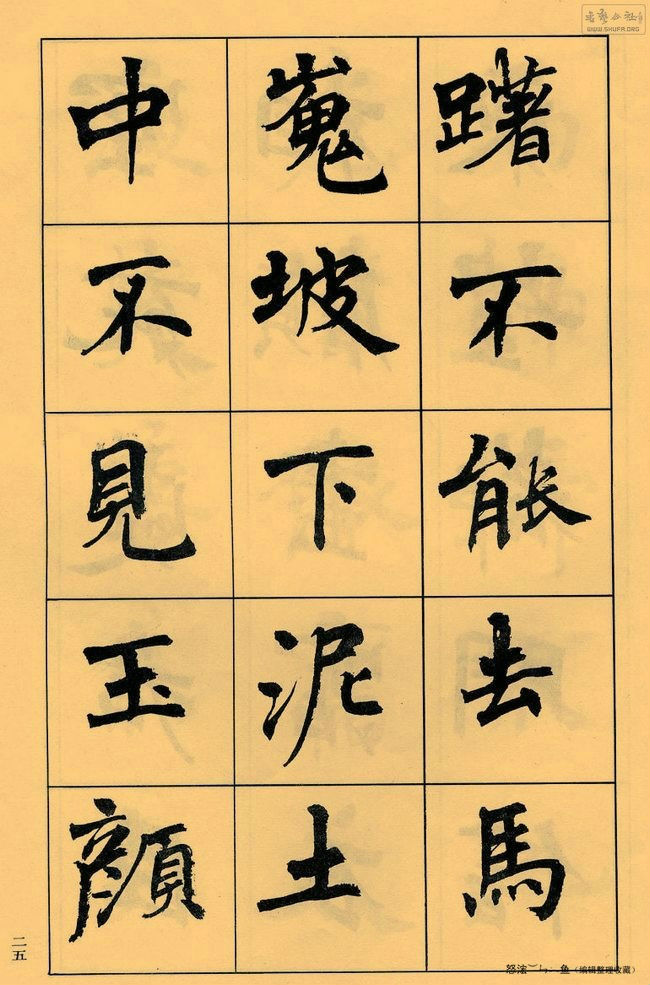 書艺公社
WWW.SHUFA.ORG
躇不能去馬
嵬坡下泥土
中不見玉顏
二五
鱼（编辑整理收藏）